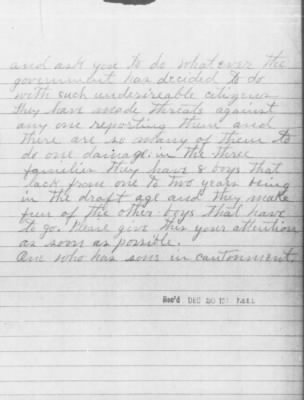 and ask you to do what ever the
government has decided to do
with such undesireable citizens
they have made threats against
any one reporting them and
there are so many of them to
do one damage. in the three
families they have 8 boys that
lack from one to two years being
in the draft age and they make
fun of the other boys that have
to go. Please give this your attention
as soon as possible.
One who has sons in cantonment
Rec'd DEC 20 1917